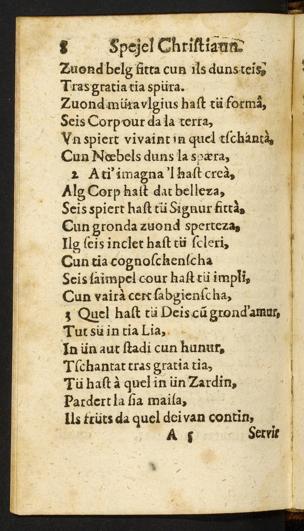 8 Spejel Christiaun.
Zuond belg fitta cun ils duns teis,
Tras gratia tia spüra.
Zuond müravlgius hast tü formâ,
Seis Corp our da la terra,
Vn spiert vivaint in quel tschantà,
Cun Nœbels duns la spæra,
2 A ti' imagna 'l hast creà,
Alg Corp hast dat belleza,
Seis spiert hast tü Signur fittà,
Cun gronda zuond sperteza,
Ilg seis inclet hast tü scleri,
Cun tia cognoschenscha
Seis saimpel cour hast tü impli,
Cun vairà cert sabgienscha,
3 Quel hast tü Deis cũ grond'amur,
Tut sü in tia Lia,
In ün aut stadi cun hunur,
Tschantat tras gratia tia,
Tü hast à quel in ün Zardin,
Par dert la sia maisa,
Ils früts da quel dei van contin,
A 5 Servir